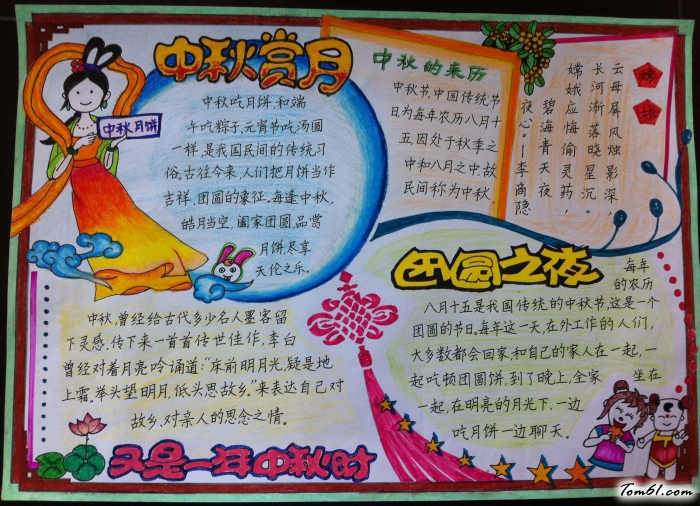 中秋赏月
中秋月饼
中秋吃月饼,和端
午吃粽子,元宵节吃汤圆
一样,是我国民间的传统习
俗。古往今来,人们把月饼当作
吉祥、团圆的象征,每逢中秋,
皓月当空,阖家团圆,品尝
月饼尽享
天伦之乐。
中秋的来历
中秋节,中国传统节
日为每年农历八月十
五,因处于秋季之
中和八月之中故
民间称为中秋
嫦娥
云母屏风烛影深,
长河渐落晓星沉。
嫦娥应悔偷灵药,
碧海青天夜
夜心。—李商隐
团圆之夜
每年
的农历
八月十五是我国传统的中秋节,这是一个
团圆的节日,每年这一天,在外工作的人们,
大多数都会回家,和自己的家人在一起,一
起吃顿团圆饼,到了晚上,全家坐在
一起,在明亮的月光下,一边
吃月饼一边聊天。
中秋,曾经给古代多少名人墨客留
下灵感,传下来一首首传世佳作,李白
曾经对着月亮吟诵道:“床前明月光,疑是地
上霜,举头望明月,低头思故乡。”来表达自己对
故乡、对亲人的思念之情。
又是一年中秋时
Tom61.com